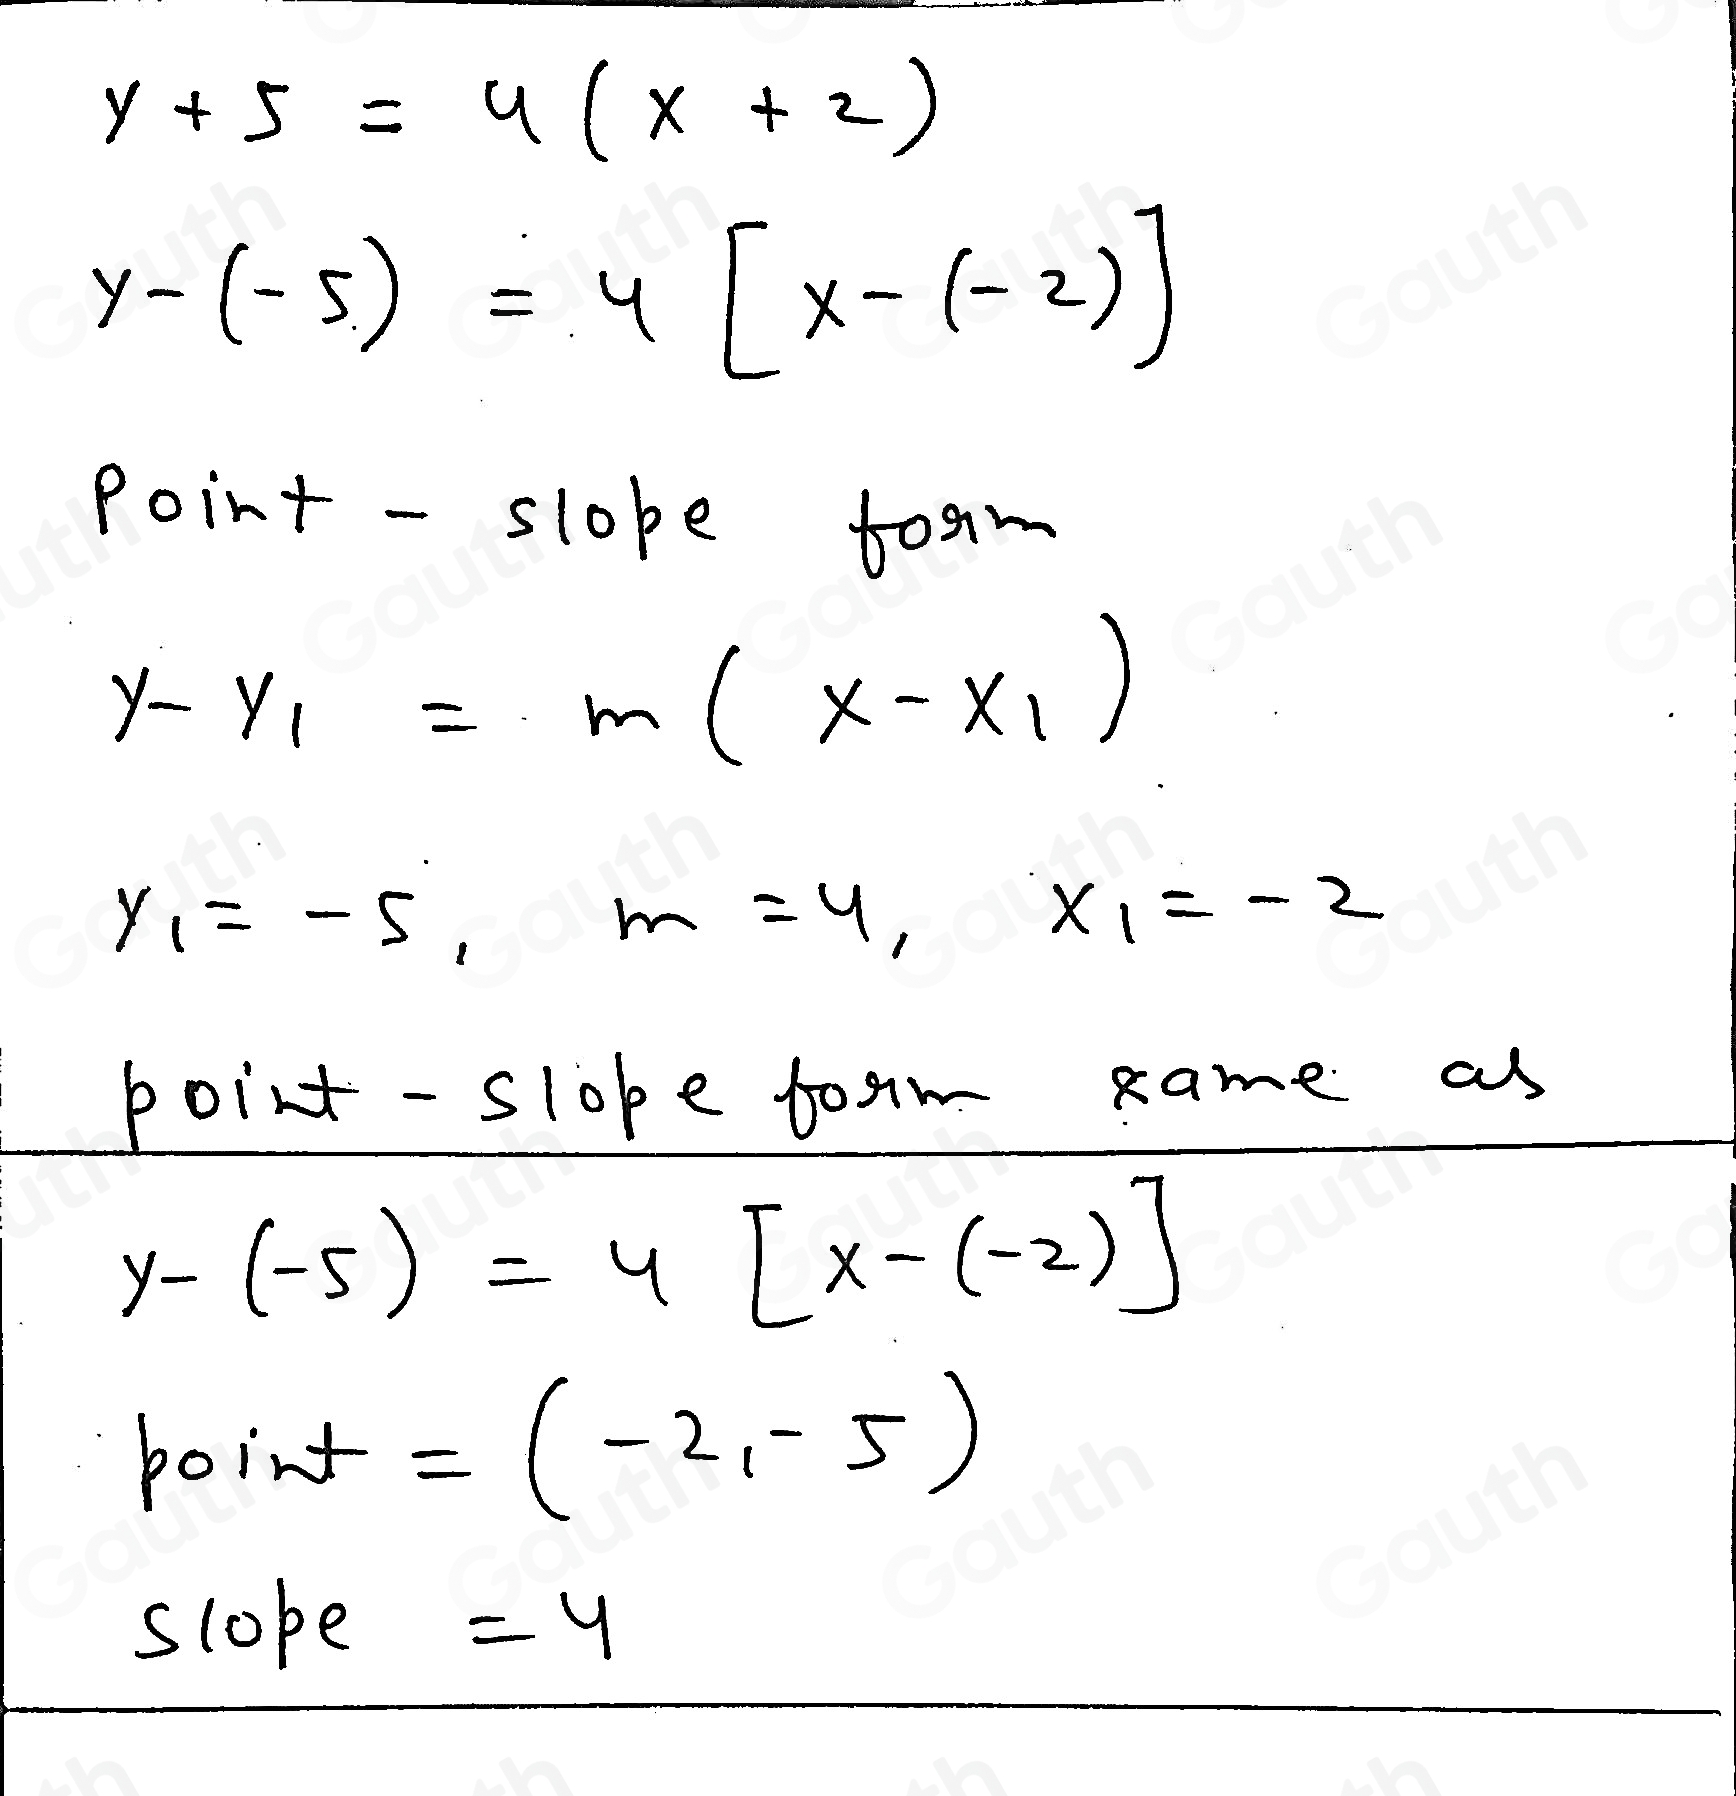 y + 5 = 4 ( x + 2 )
y - (- 5) = 4 [ x - (- 2) ]
Point - slope form
y - y1 = m ( x - x1 )
y1 = - 5, m = 4, x1 = - 2
point - slope form same as
y - (-5) = 4 [ x - (-2) ]
point = ( -2, - 5 )
slope = 4